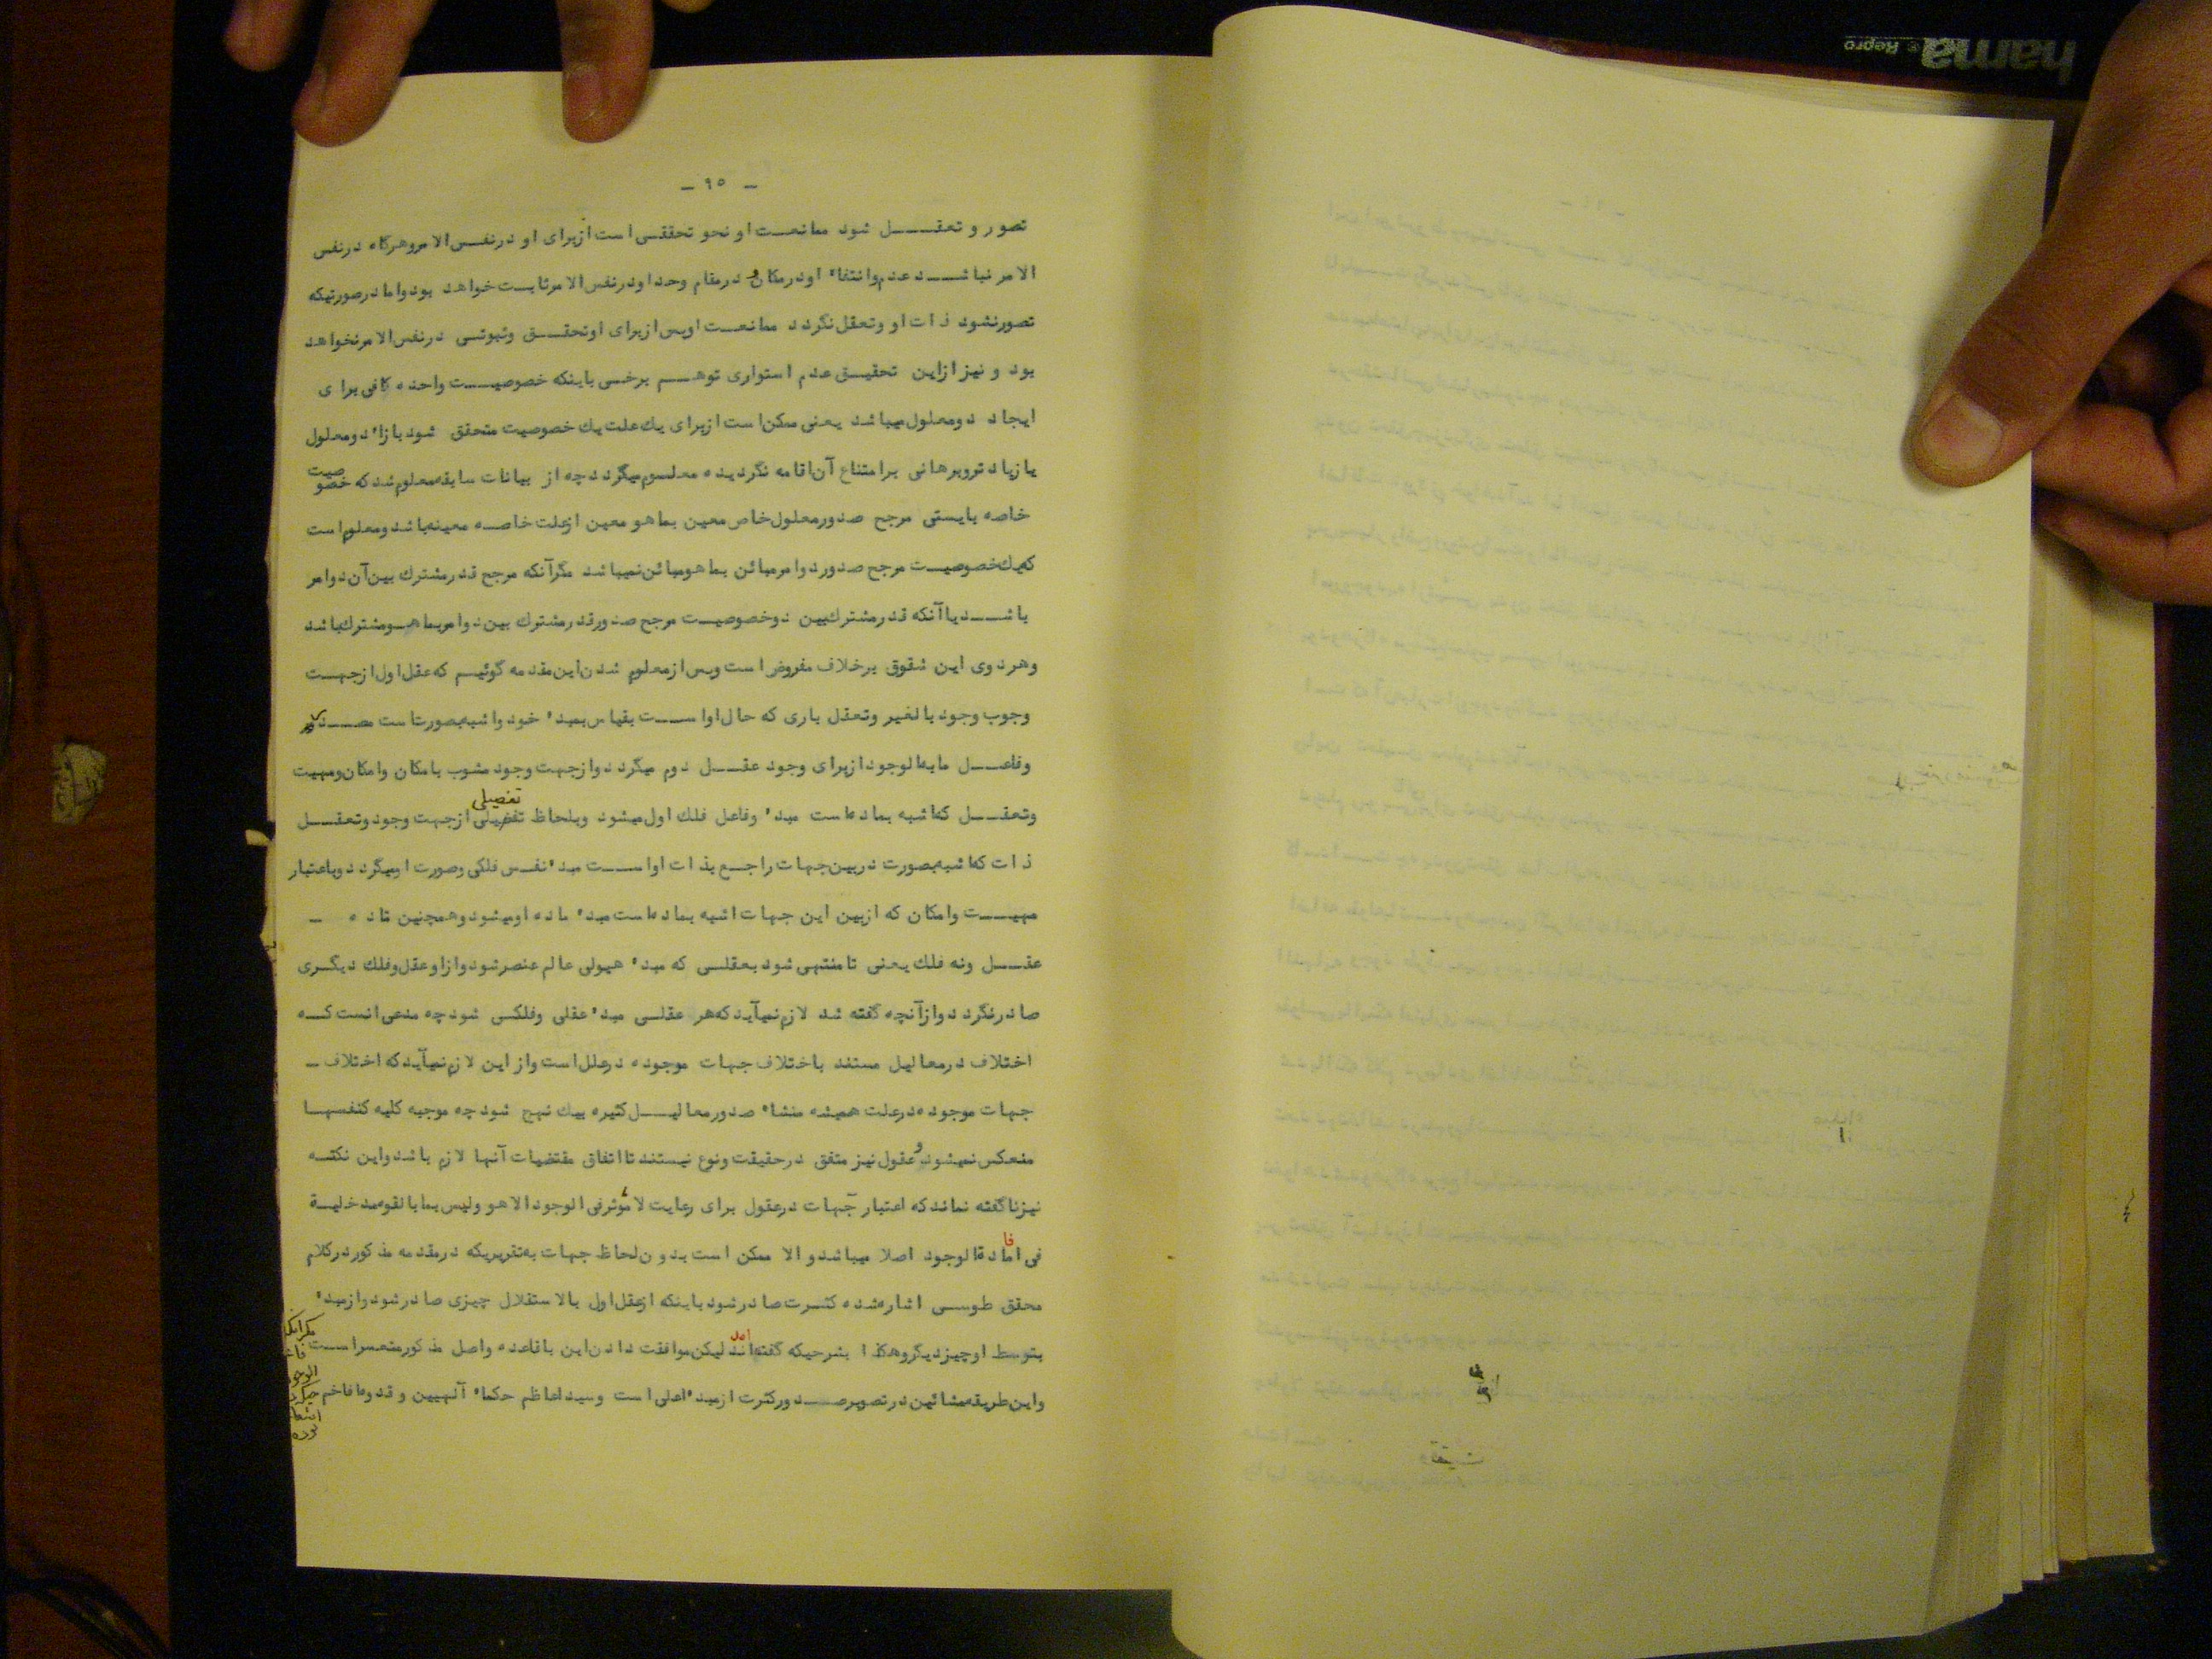 - ٩٥ -
تصور و تعقل شود ممانعت او نحو تحققی است از برای او در نفس الامر و هرگاه در نفس
الامر نباشد عدم و انتفاء او در مکان و در مقام وحد او در نفس الامر ثابت خواهد بود و اما در صورتیکه
تصور نشود ذات او و تعقل نگردد ممانعت او پس از برای او تحقق و ثبوتی در نفس الامر نخواهد
بود و نیز از این تحقیق عدم استواری توهم برخی باینکه خصوصیت واحده کافی برای
ایجاد دو معلول میباشد یعنی ممکن است از برای یک علت یک خصوصیت متحقق شود بازاء دو معلول
یا زیادتر و برهانی بر امتناع آن اقامه نگردیده معلوم میگردد چه از بیانات سابقه معلوم شد که خصوصیت
خاصه بایستی مرجح صدور معلول خاص معین بما هو معین از علت خاصه معینه باشد و معلوم است
که یک خصوصیت مرجح صدور دو امر مبائن بما هو مبائن نمیباشد مگر آنکه مرجح قدر مشترک بین آن دو امر
باشد یا آنکه قدر مشترک بین دو خصوصیت مرجح صدور قدر مشترک بین دو امر بما هو مشترک باشد
و هر دوی این شقوق بر خلاف مفروض است و پس از معلوم شدن این مقدمه گوئیم که عقل اول از جهت
وجوب وجود بالغیر و تعقل باری که حال او است بقیاس بمبدء خود و اشبه بصورت است مصدر
و فاعل ما به الوجود از برای وجود عقل دوم میگردد و از جهت وجود مشوب بامکان و امکان و مهیت
و تعقل که اشبه بماده است مبدء و فاعل فلک اول میشود و بلحاظ تفصیلی تفصیلی از جهت وجود و تعقل
ذات که اشبه بصورت در بین جهات راجع بذات او است مبدء نفس فلکی و صورت او میگردد و باعتبار
مهیت و امکان که از بین این جهات اشبه بماده است مبدء ماده او میشود و همچنین تا ده -
عقل و نه فلک یعنی تا منتهی شود بعقلی که مبدء هیولی عالم عنصر شود و از او عقل و فلک دیگری
صادر نگردد و از آنچه گفته شد لازم نمیآید که هر عقلی مبدء عقلی و فلکی شود چه مدعی انست که
اختلاف در معالیل مستند باختلاف جهات موجوده در علل است و از این لازم نمیآید که اختلاف -
جهات موجوده در علت همیشه منشاء صدور معالیل کثیره بیک نهج شود چه موجبه کلیه کنفسها
منعکس نمیشود و عقول نیز متفق در حقیقت و نوع نیستند تا اتفاق مقتضیات آنها لازم باشد و این نکته
نیز ناگفته نماند که اعتبار جهات در عقول برای رعایت لا مؤثر فی الوجود الا هو و لیس بما بالقوه مدخلیة
فی افادة الوجود اصلا میباشد و الا ممکن است بدون لحاظ جهات به تقریریکه در مقدمه مذکور در کلام
محقق طوسی اشاره شده کثرت صادر شود باینکه از عقل اول بالاستقلال چیزی صادر شود و از مبدء
بتوسط او چیز دیگر و هکذا بشرحیکه گفته اند لیکن موافقت دادن این با قاعده و اصل مذکور متعسر است
و این طریقه مشائین در تصویر صدور کثرت از مبدء اعلی است و سید اعاظم حکماء آلهیین و قدوه افاخم
hama
Repro